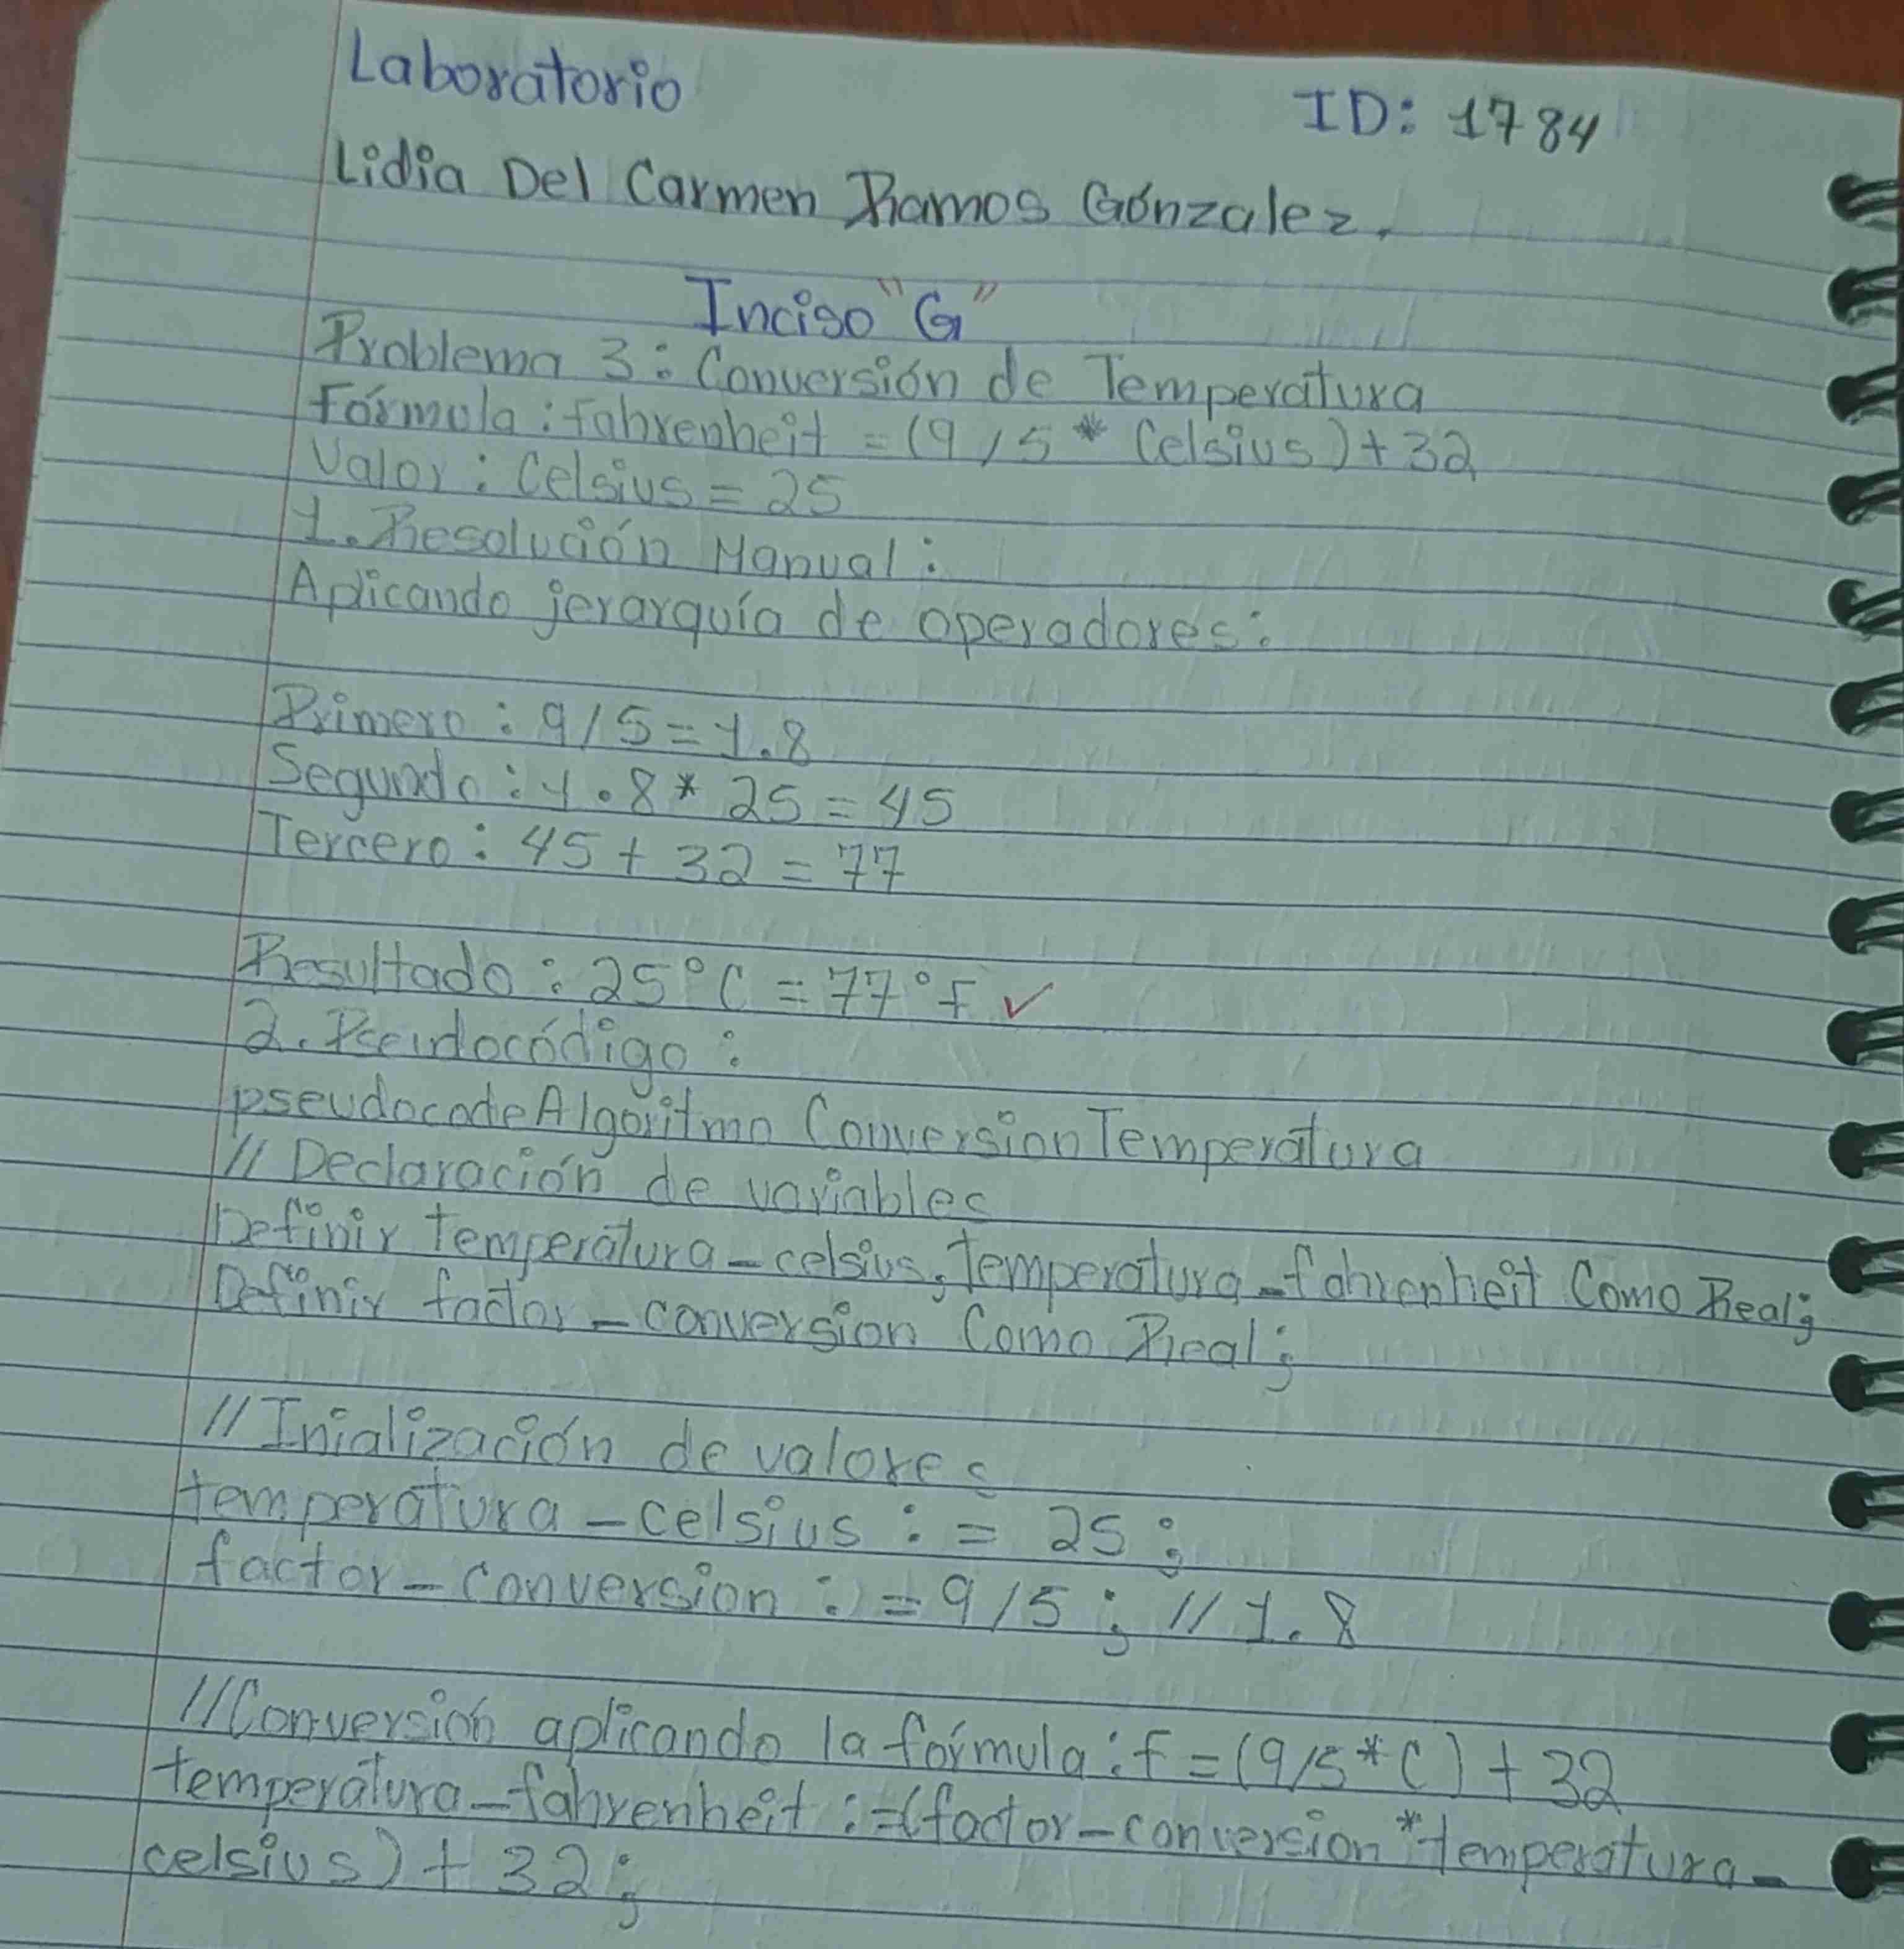 Laboratorio
ID: 1784
Lidia Del Carmen Ramos Gónzalez.
Inciso "G"
Problema 3: Conversión de Temperatura
Fórmula: fahrenheit = (9/5 * Celsius) + 32
Valor: Celsius = 25
1. Resolución Manual:
Aplicando jerarquía de operadores:
Primero: 9/5 = 1.8
Segundo: 1.8 * 25 = 45
Tercero: 45 + 32 = 77
Resultado: 25°C = 77°F ✓
2. Pseudocódigo:
pseudocodeAlgoritmo ConversionTemperatura
// Declaración de variables
Definir temperatura-celsius, temperatura-fahrenheit Como Real;
Definir factor-conversion Como Real;
// Inialización de valores
temperatura-celsius := 25;
factor-conversion := 9/5; // 1.8
//Conversión aplicando la fórmula: F = (9/5 * C) + 32
temperatura-fahrenheit := (factor-conversion * temperatura-
celsius) + 32;